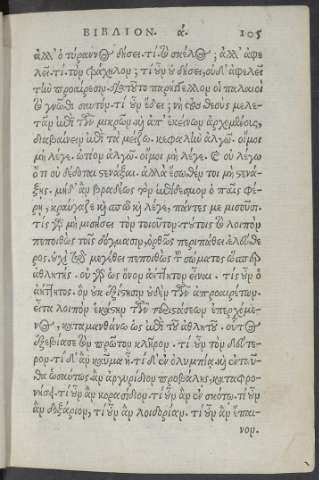 ΒΙΒΛΙΟΝ. ά. 105
ἀλλ' ὁ τύραννος δήσει. τί; τὸ σκέλος; ἀλλ' ἀφε
λεῖ. τί; τὸν τράχηλον; τί οὖν οὐ δήσει, οὐδ' ἀφελεῖ
τὴν προαίρεσιν. διὰ τοῦτο παρήγγελλον οἱ παλαιοὶ
τὸ γνῶθι σαυτόν. τί οὖν ἔδει; νὴ τοὺς θεοὺς μελε
τᾶν ἐπὶ τῶν μικρῶν, καὶ ἀπ' ἐκείνων ἀρχομένους,
διαβαίνειν ἐπὶ τὰ μείζω. κεφαλὴν ἀλγῶ. οἴμοι
μὴ λέγε. ὠτίον ἀλγῶ. οἴμοι μὴ λέγε. καὶ οὐ λέγω
ὅτι οὐ δέδοται στενάξαι. ἀλλὰ ἔσωθέν τοι μὴ στενά
ξῃς. μηδ' ἂν βραδέως τὸν ἐπίδεσμον ὁ παῖς φέ
ρῃ, κραύγαζε καὶ σπῶ καὶ λέγε, πάντες με μισοῦσι.
τίς γὰρ μὴ μισήσει τὸν τοιοῦτον. τούτοις τὸ λοιπὸν
πεποιθὼς τοῖς δόγμασιν, ὀρθὸς περιπάτει ἐλεύθε
ρος. οὐχὶ τῷ μεγέθει πεποιθὼς τοῦ σώματος ὥσπερ
ἀθλητής. οὐ γὰρ ὡς ὄνον ἀήττητον εἶναι. τίς οὖν ὁ
ἀήττητος. ὃν οὐκ ἐξίστησιν οὐδὲν τῶν ἀπροαιρέτων.
εἶτα λοιπὸν ἑκάστην τῶν περιστάσεων ὑπερχόμε
νος, καταμανθάνω ὡς ἐπὶ τοῦ ἀθλητοῦ. οὗτος
ἐξεβίασε τὸν πρῶτον κλῆρον. τί οὖν τὸν δεύτε
ρον. τί δ' ἂν καῦμα ᾖ. τί δ' ἐν ὀλυμπίᾳ. καὶ ἐνταῦ
θα ὡσαύτως. ἂν ἀργυρίδιον προβάλῃς, καταφρο
νήσει. τί οὖν ἂν κορασίδιον. τί οὖν ἂν ἐν σκότῳ. τί οὖν
ἂν δοξάριον, τί οὖν ἂν λοιδορίαν. τί οὖν ἂν ἔπαι
νον.